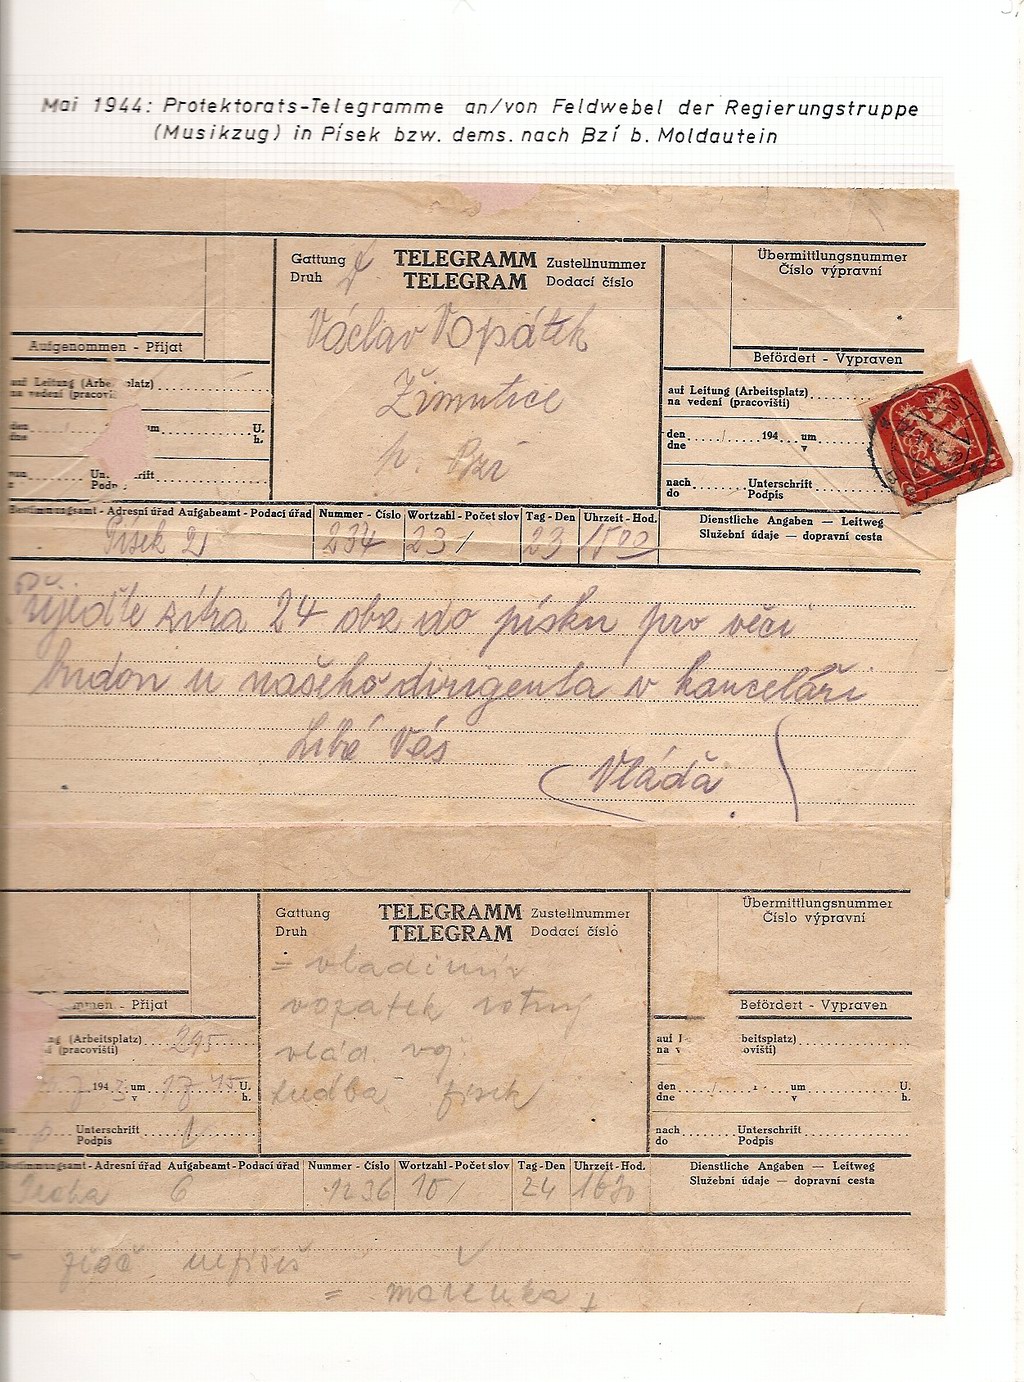 Mai 1944: Protektorats-Telegramme an/von Feldwebel der Regierungstruppe
(Musikzug) in Písek bzw. dems. nach Bzí b. Moldautein
Gattung TELEGRAMM Zustellnummer
Druh TELEGRAM Dodací číslo
Übermittlungsnummer
Číslo výpravní
Václav Vopátek
Žimutice
p. Bzí
Aufgenommen - Přijat
Befördert - Vypraven
auf Leitung (Arbe platz)
na vedení (pracovi
den
dne
um U.
h.
Un rift
Podp
auf Leitung (Arbeitsplatz)
na vedení (pracovišti)
den 194 um
dne v
nach Unterschrift
do Podpis
Bestimmungsamt - Adresní úřad Aufgabeamt - Podací úřad Nummer - Číslo Wortzahl - Počet slov Tag - Den Uhrzeit - Hod.
Dienstliche Angaben — Leitweg
Služební údaje — dopravní cesta
Písek 2 234 23/ 23 1500
Přijeďte zítra 24 obz do písku pro věci
budou u našeho dirigenta v kanceláři
Líbá Vás
Vláďa
Gattung TELEGRAMM Zustellnummer
Druh TELEGRAM Dodací číslo
Übermittlungsnummer
Číslo výpravní
= vladimír
vopatek rotný
vlád. voj.
hudba písek
mmen - Přijat
Befördert - Vypraven
ng (Arbeitsplatz) 295
í (pracovišti)
194 3 um 17 45 U.
v h.
Unterschrift
Podpis
auf L beitsplatz)
na v ovišti)
den um U.
dne v h.
nach Unterschrift
do Podpis
Bestimmungsamt - Adresní úřad Aufgabeamt - Podací úřad Nummer - Číslo Wortzahl - Počet slov Tag - Den Uhrzeit - Hod.
Dienstliche Angaben — Leitweg
Služební údaje — dopravní cesta
Praha 6 1236 10/ 24 1630
= proč nepíšeš
= marenka +